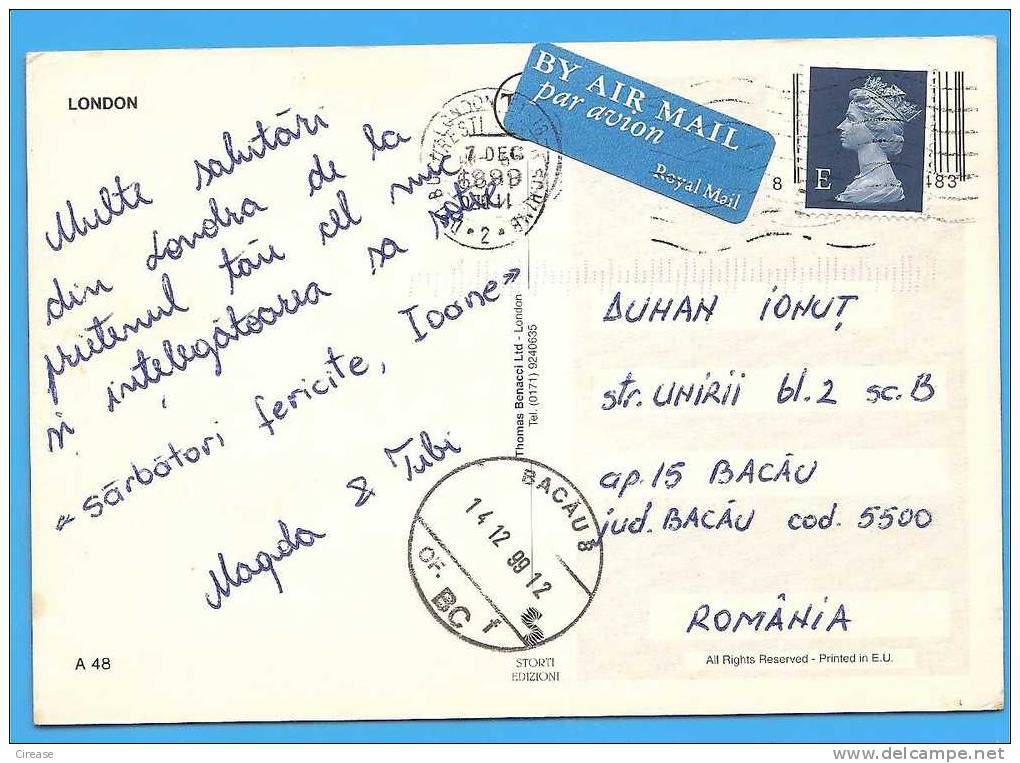 LONDON
Multe salutări
din Londra de la
prietenul tău cel mic
și înțelegătoarea sa soție
" sărbători fericite, Ioane "
Magda & Tubi
A 48
BY AIR MAIL
par avion
Royal Mail
E
8
483
7 DEC
2
Thomas Benacci Ltd - London
Tel. (0171) 9240635
DUHAN IONUȚ
str. UNIRII bl. 2 sc. B
ap. 15 BACĂU
jud. BACĂU cod. 5500
ROMÂNIA
BACĂU 8
14 12 99 12
OF. BC 1
STORTI
EDIZIONI
All Rights Reserved - Printed in E.U.
Cirease
www.delcampe.net